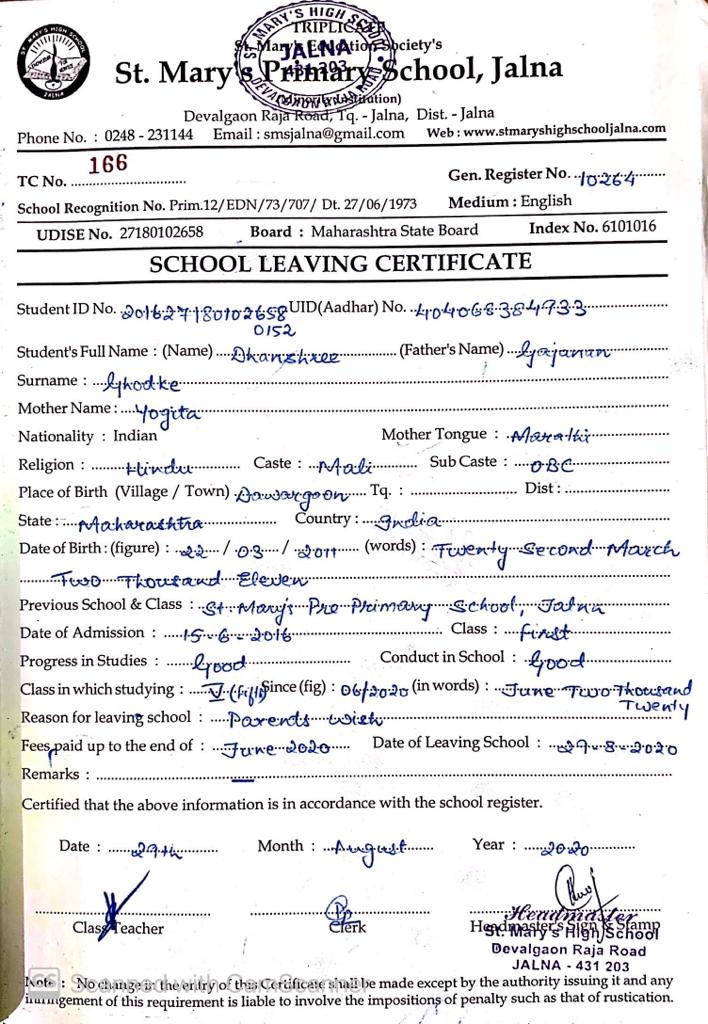 TRIPLICATE
St. Mary's Education Society's
St. Mary's Primary School, Jalna
ST. MARY'S HIGH SCHOOL
JALNA
431 203
DEVALGAON RAJA ROAD
Devalgaon Raja Road, Tq. - Jalna, Dist. - Jalna
Phone No. : 0248 - 231144 Email : smsjalna@gmail.com Web : www.stmaryshighschooljalna.com
TC No. 166 Gen. Register No. 10264
School Recognition No. Prim.12/EDN/73/707/ Dt. 27/06/1973 Medium : English
UDISE No. 27180102658 Board : Maharashtra State Board Index No. 6101016
SCHOOL LEAVING CERTIFICATE
Student ID No. 201627180102658 UID(Aadhar) No. 404068384933
0152
Student's Full Name : (Name) Dhanshree (Father's Name) Gajanan
Surname : Ghodke
Mother Name : Yogita
Nationality : Indian Mother Tongue : Marathi
Religion : Hindu Caste : Mali Sub Caste : OBC
Place of Birth (Village / Town) Dawargaon Tq. : Dist :
State : Maharashtra Country : India
Date of Birth : (figure) : 22 / 03 / 2011 (words) : Twenty Second March
Two Thousand Eleven
Previous School & Class : St. Mary's Pre Primary School, Jalna
Date of Admission : 15-6-2016 Class : First
Progress in Studies : Good Conduct in School : Good
Class in which studying : V (fifth) Since (fig) : 06/2020 (in words) : June Two Thousand
Twenty
Reason for leaving school : Parents Wish
Fees paid up to the end of : June 2020 Date of Leaving School : 29-8-2020
Remarks : —
Certified that the above information is in accordance with the school register.
Date : 29th Month : August Year : 2020
Class Teacher Clerk Headmaster's Sign & Stamp
Headmaster
St. Mary's High School
Devalgaon Raja Road
JALNA - 431 203
Note : No change in the entry of this Certificate shall be made except by the authority issuing it and any
infringement of this requirement is liable to involve the impositions of penalty such as that of rustication.
CS Scanned with CamScanner